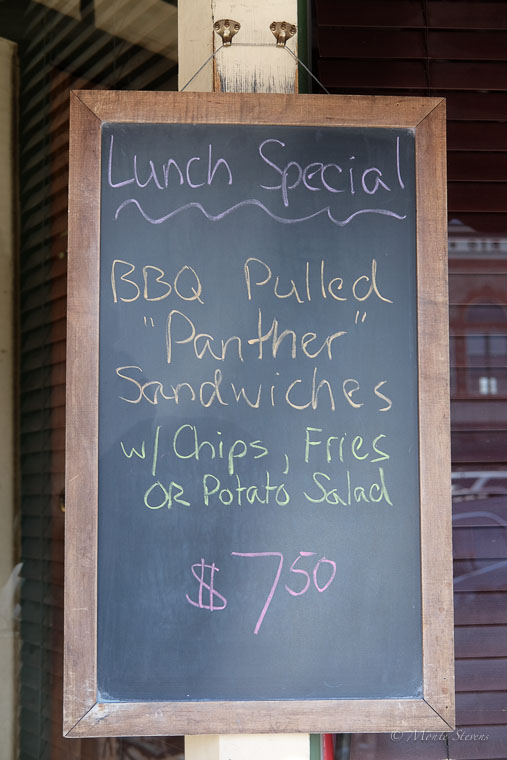 Lunch Special
BBQ Pulled
"Panther"
Sandwiches
w/ Chips, Fries
OR Potato Salad
$750
© Monte Stevens